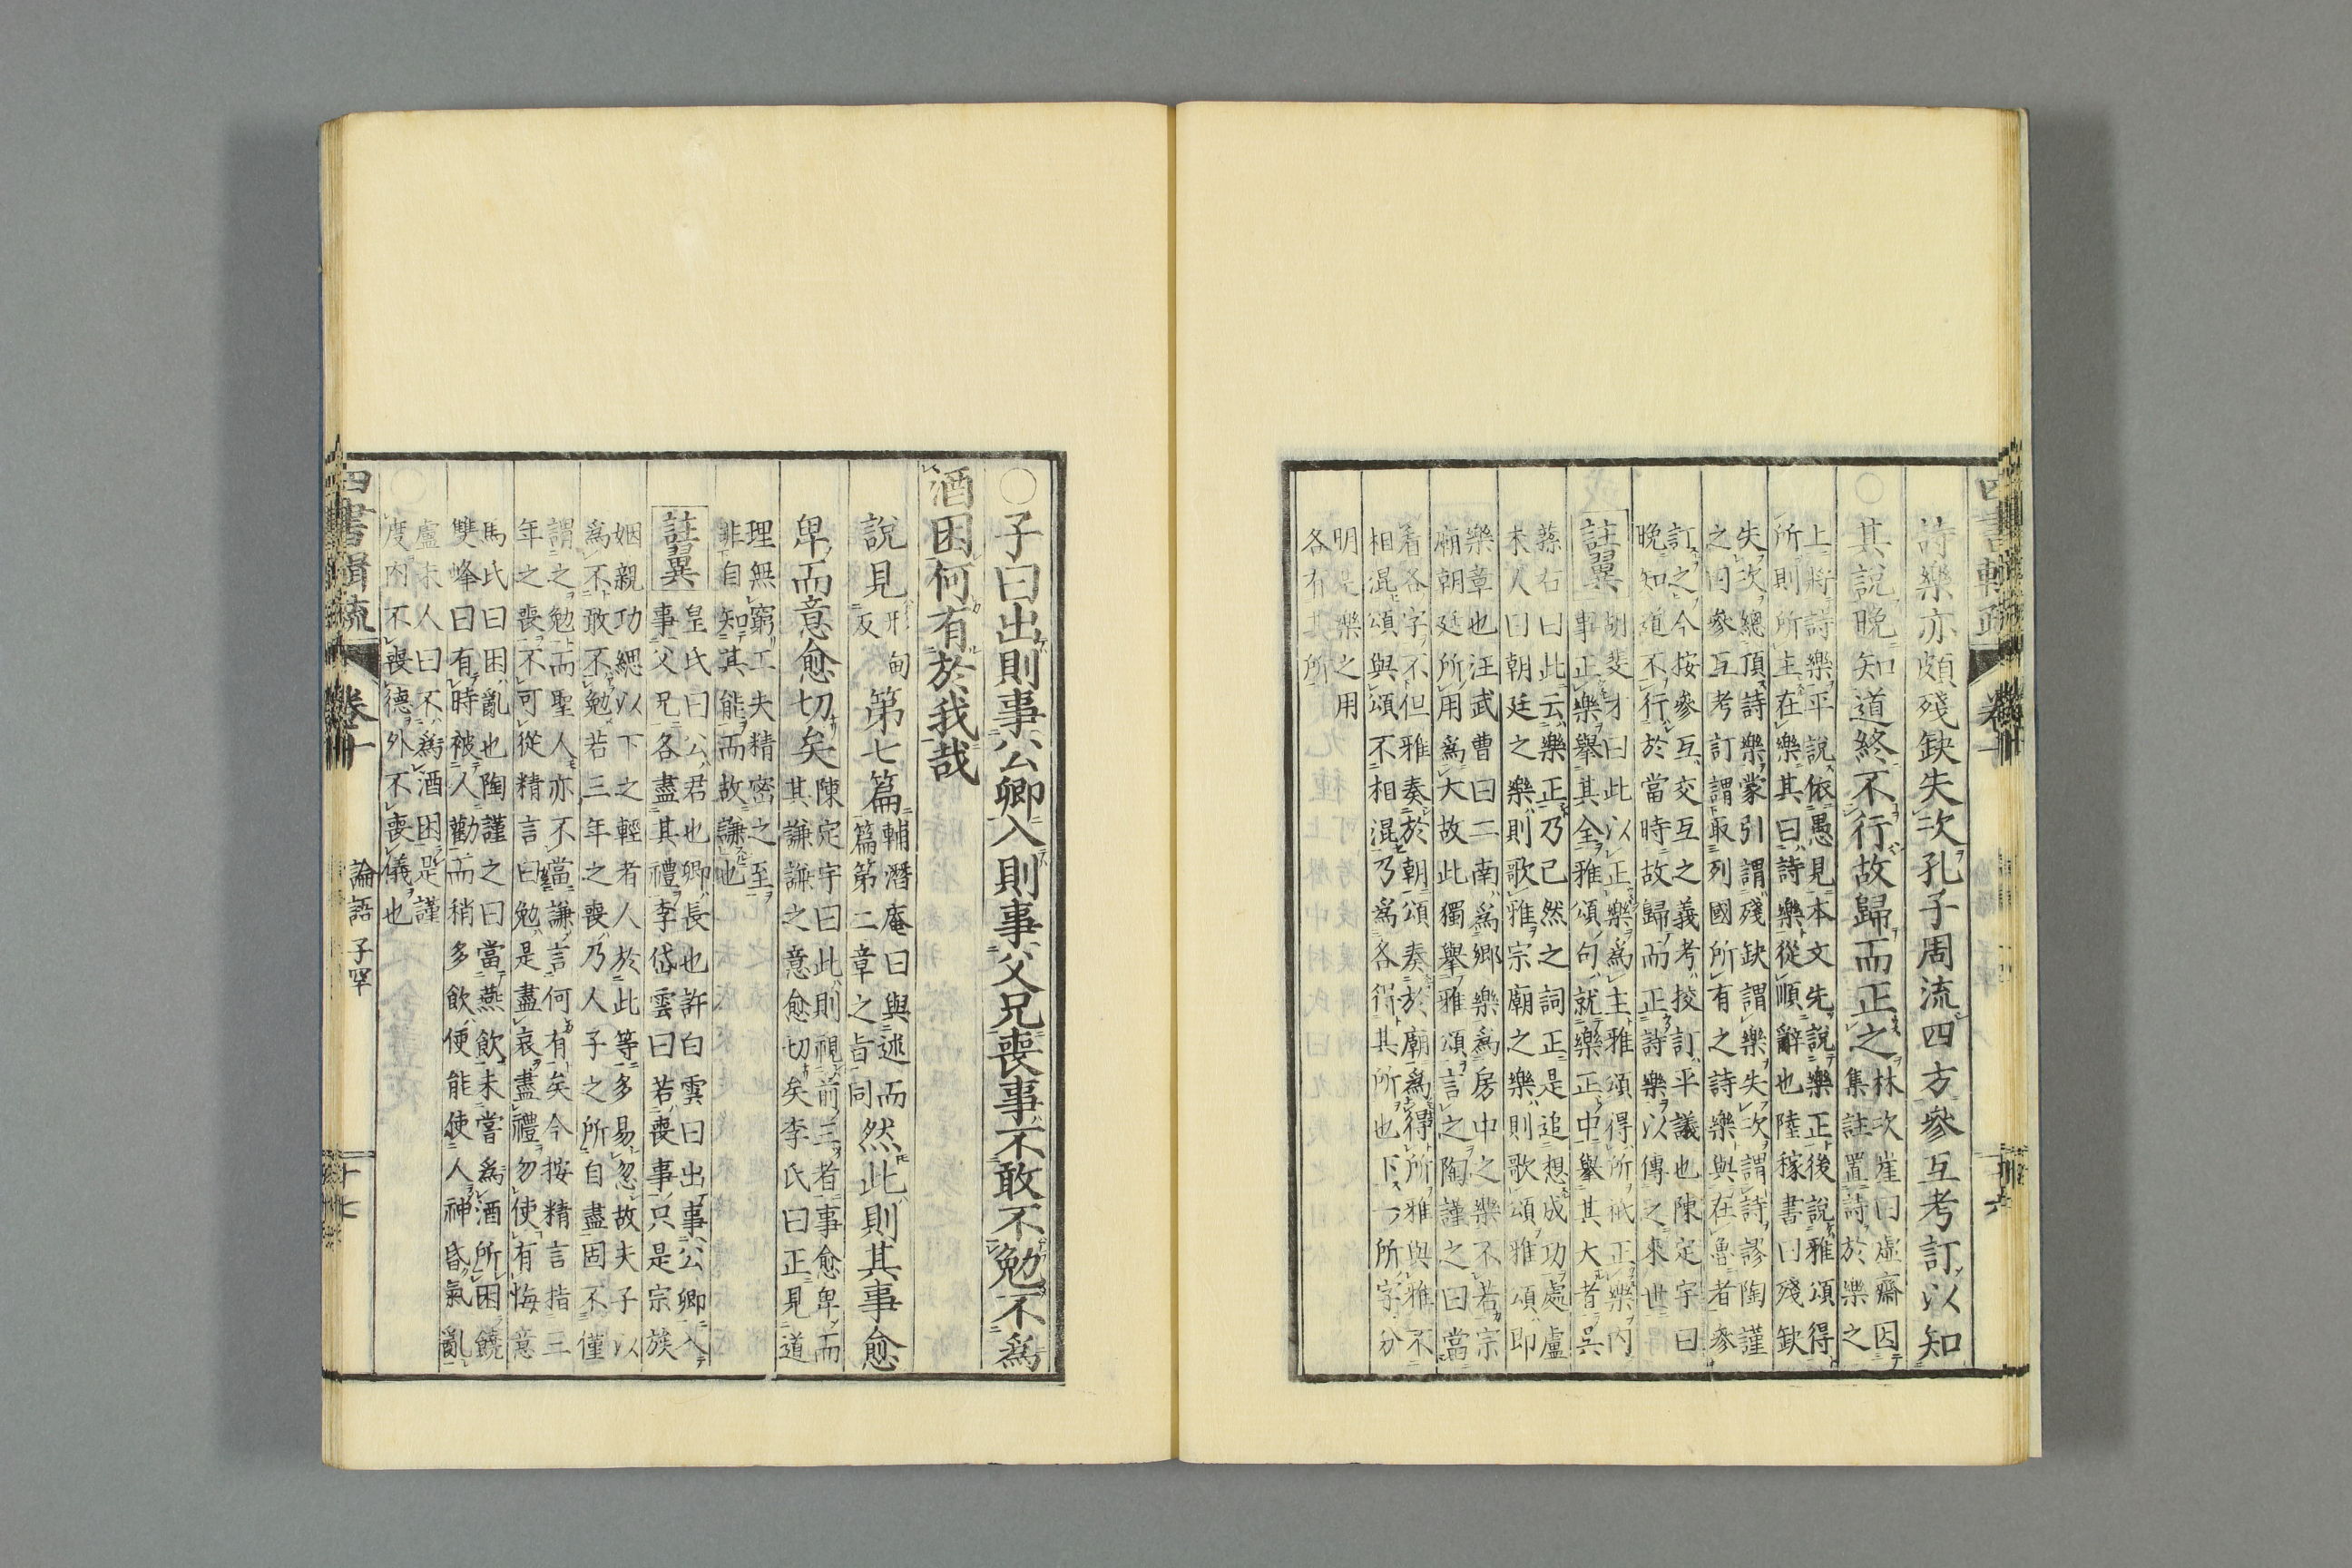 詩樂亦頗殘缺失次孔子周流四方參互考訂以知
其說晚知道終不行故歸而正之
林次崖曰虛齋因
集註置詩於樂之
上將詩樂平說依愚見本文先說樂正後說雅頌得
所則所主在樂其曰詩樂從順辭也陸稼書曰殘缺
失次總頂詩樂蒙引謂殘缺謂樂失次謂詩謬陶謹
之曰參互考訂謂取列國所有之詩樂與在魯者參
訂之今按參互交互之義考挍訂平議也陳定宇曰
晚知道不行於當時故歸而正詩樂以傳之來世
註翼
胡斐才曰此以正樂爲主雅頌得所祇正樂內
事正樂擧其全雅頌句就樂正中擧其大者吳
蓀右曰此云樂正乃已然之詞正是追想成功處盧
未人曰朝廷之樂則歌雅宗廟之樂則歌頌雅頌即
樂章也汪武曹曰二南爲鄉樂爲房中之樂不若宗
廟朝廷所用爲大故此獨擧雅頌言之陶謹之曰當
看各字不但雅奏於朝頌奏於廟爲得所雅與雅不
相混頌與頌不相混乃爲各得其所也下一所字分
明是樂之用
各有其所
四書輯疏
○子曰出則事公卿入則事父兄喪事不敢不勉不爲
酒困何有於我哉
說見
形甸
反
第七篇
輔潛庵曰與述而
篇第二章之旨同
然此則其事愈
卑而意愈切矣
陳定宇曰此則視前三者事愈卑而
其謙謙之意愈切矣李氏曰正見道
理無窮工夫精密之至
非自知其能而故謙也
註翼
皇氏曰公君也卿長也許白雲曰出事公卿入
事父兄各盡其禮李岱雲曰若喪事只是宗族
姻親功緦以下之輕者人於此等多易忽故夫子以
爲不敢不勉若三年之喪乃人子之所自盡固不僅
謂之勉而聖人亦不當謙言何有矣今按精言指三
年之喪不可從精言曰勉是盡哀盡禮勿使有悔意
馬氏曰困亂也陶謹之曰當燕飲未嘗爲酒所困饒
雙峰曰有時被人勸而稍多飲便能使人神昏氣亂
盧未人曰不爲酒困是謹
度內不喪德外不喪儀也
四書輯疏 卷十 論語 子罕 十七